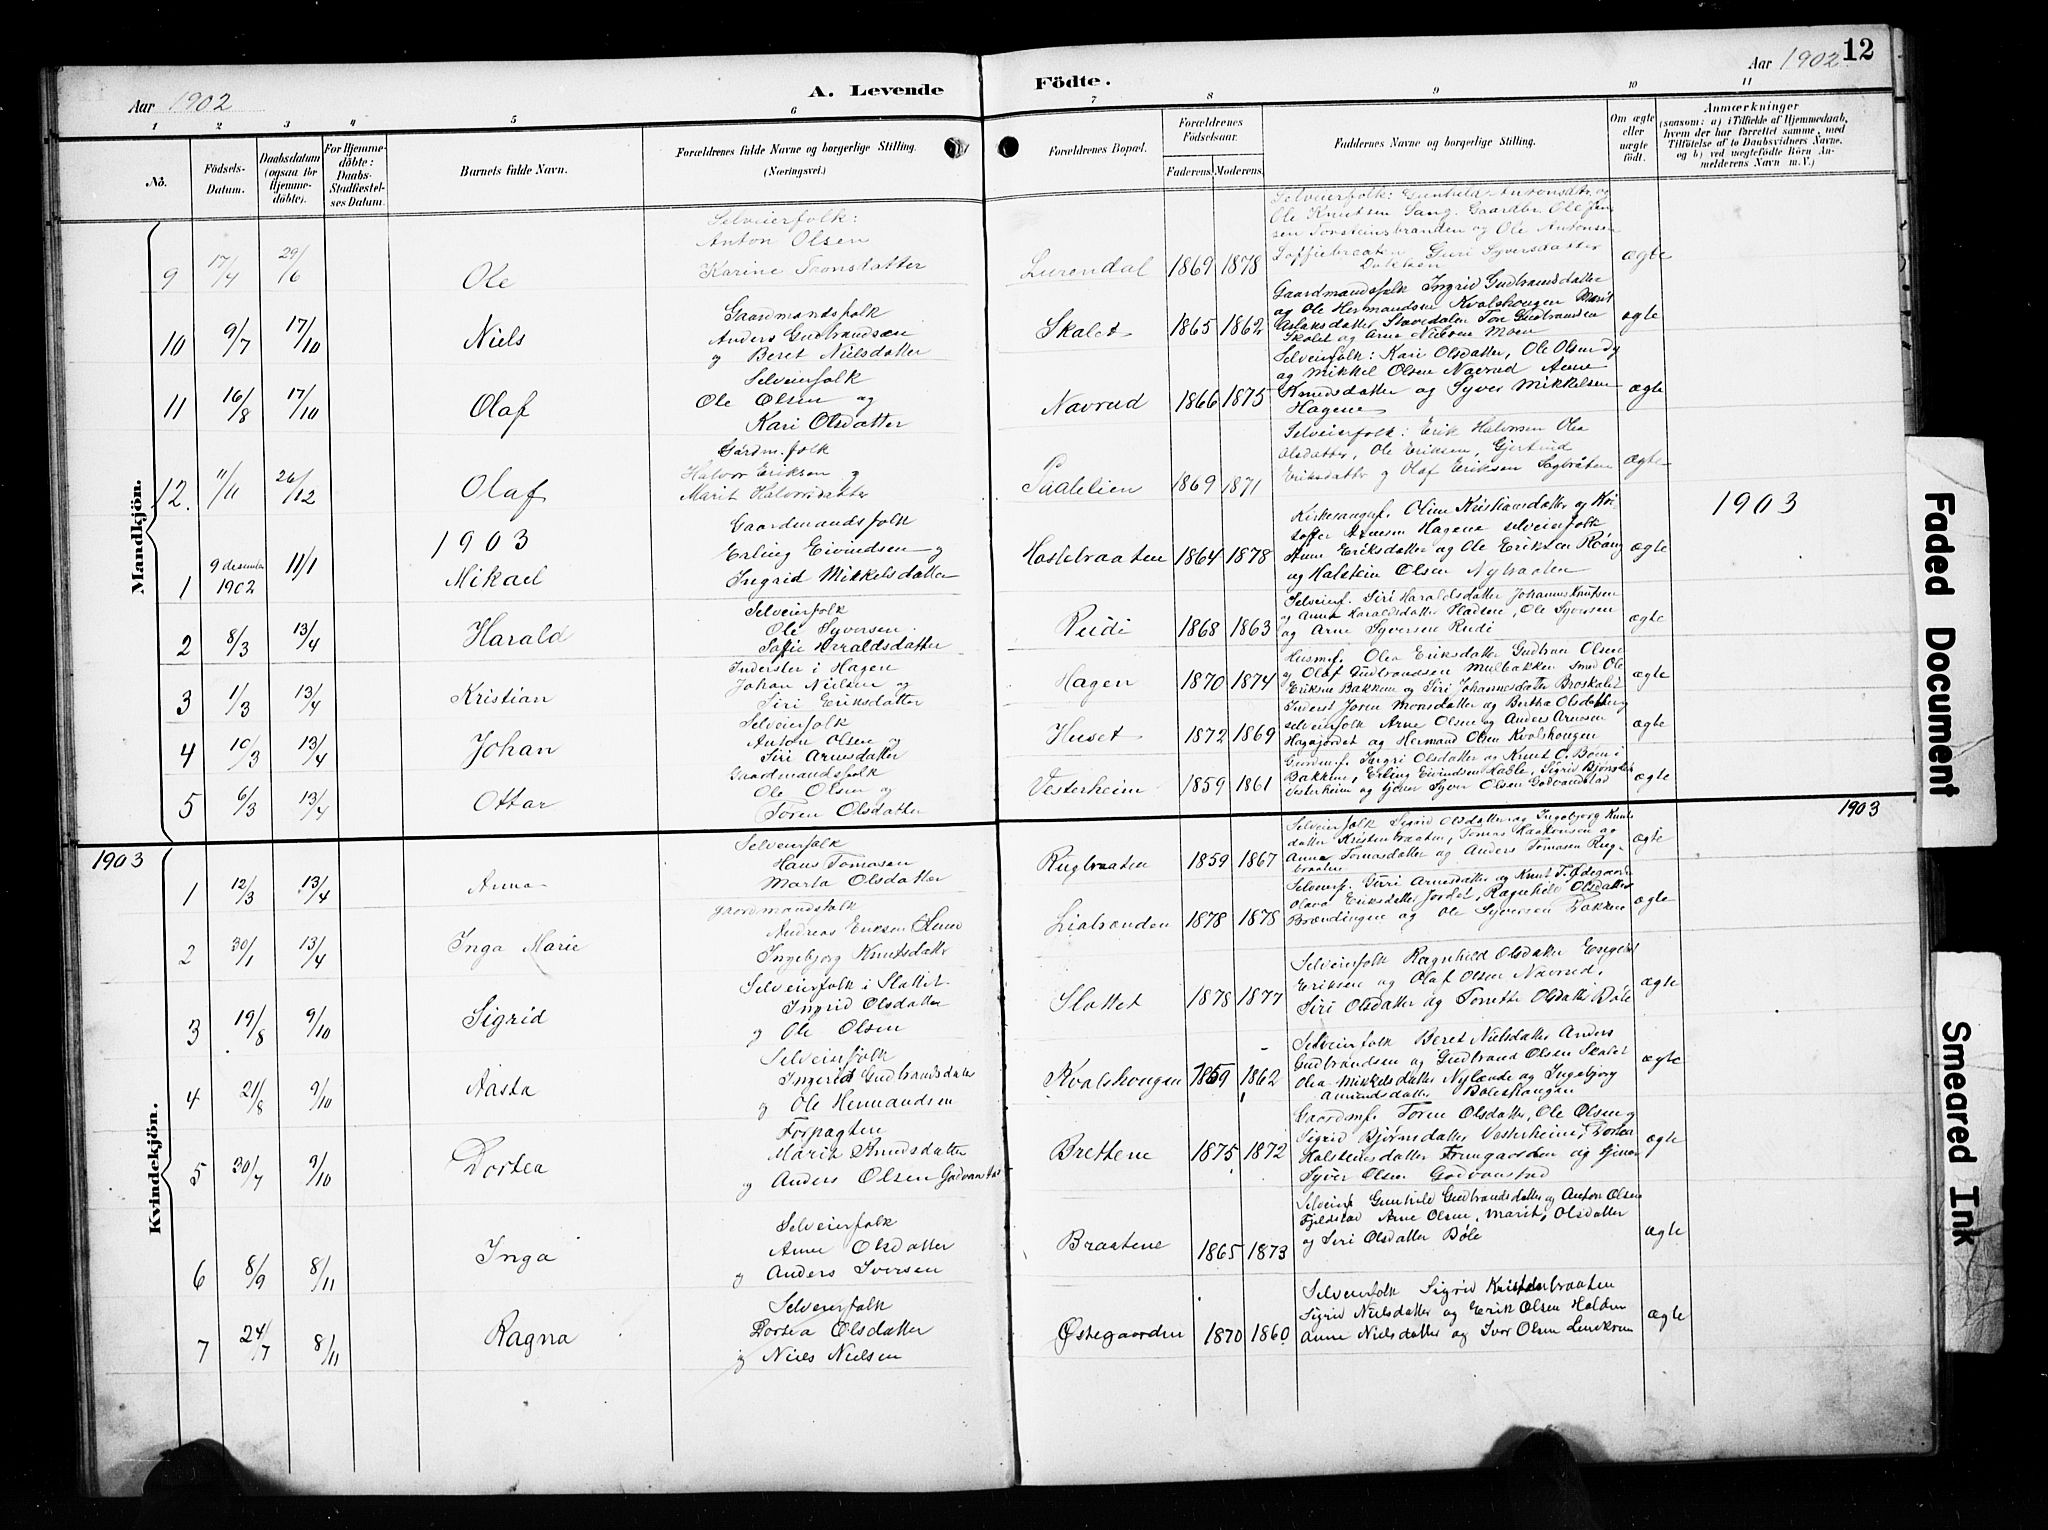 Aar 1902
A. Levende
Födte.
Aar 1902
12
1 2 3 4 5 6 7 8 9 10 11
No.
Födsels-Datum.
Daabsdatum (ogsaa for Hjemmedöbte).
For Hjemmedöbte: Daabs-Stadfæstelses Datum.
Barnets fulde Navn.
Forældrenes fulde Navne og borgerlige Stilling. (Næringsvei.)
Forældrenes Bopæl.
Forældrenes Födselsaar.
Faderens. Moderens.
Faddernes Navne og borgerlige Stilling.
Om ægte eller uægte födt.
Anmærkninger
(saasom: a) i Tilfælde af Hjemmedaab, hvem der har forrettet samme, med Tilföielse af to Daabsvidners Navne, og b) ved uægtefödte Börn Anmelderens Navn m. V.)
Mandkjön.
Selveierfolk:
Anton Olsen
9 17/4 29/6 Ole Karine Lurendal 1869 1878 ægte
Selveierfolk: Gunhild Antonsdtr og
Ole Knutsen Sang. Gaardbr. Ole
og Ole Antonsen
Guri Syversdatter
Dokken
Gaardmandsfolk
10 9/7 17/10 Niels Anders Gudbrandsen
og Beret Nielsdatter
Skalet 1865 1862 ægte
Gaardmandsfolk Ingrid Gudbransdatter
og Ole Hermandsen Kvalshougen Marit
Aslaksdatter Tore Gudbrandsen
Skolet og Arne Nielsene Moen
Selveierfolk
11 16/8 17/10 Olaf Ole Olsen og
Kari Olsdatter
Navrud 1866 1875 ægte
Selveierfolk: Kari Olsdatter, Ole Olsen og
og Mikkel Olsen Navrud Anne
Knudsdatter og Syver Mikkelsen
Hagene
Gårdm.folk
12. 11/11 26/12 Olaf Halvor Eriksen og
Marit Halvorsdatter
1869 1871 ægte
Selveierfolk: Erik Halvorsen Olea
Olsdatter, Ole Eriksen, Gjertrud
Eriksdatter og Olaf Eriksen Sagbråten
1903
1903
Gaardmandsfolk
1 9 desember 1902 11/1 Mikael Erling Eivindsen og
Ingrid Mikkelsdatter
1864 1878 ægte
Kirkesangerf. Oline Kristiansdatter og
Hagene selveierfolk
Anne Eriksdatter og Ole Eriksen
og Halstein Olsen Nybraaten
Selveierfolk
2 8/3 13/4 Harald Ole Syversen
Sofie Haraldsdatter
Rudi 1868 1863 ægte
Selveierf. Siri Haraldsdatter Johannes Knutsen
og Anne Haraldsdatter Ole Syversen
og Arne Syversene Rudi
Inderster i Hagen
3 1/3 13/4 Kristian Johan Nielsen og
Siri Eriksdatter
Hagen 1870 1874 ægte
Husmf. Olea Eriksdatter Olsen
og Olaf Gudbrandsen Mulbakken Smed Ole
Eriksen Bakken og Siri Johannesdatter Broskalet
Selveierfolk
4 10/3 13/4 Johan Anton Olsen og
Siri Arnesdatter
Huset 1872 1869 ægte
Inderst Joren Monsdatter og Bertha
selveierfolk Arne Olsen og Anders Arnesen
Hagajordet og Hermand Olsen Kvalshougen
Gaardmandsfolk
5 6/3 13/4 Ottar Ole Olsen og
Toren Olsdatter
Vesterheim 1859 1861 ægte
Ingri Olsdatter og Knut O. Böen i
Bakken, Erling Eivindsen Sigrid
Vesterheim og tjener Syver Olsen Godvanstad
1903
1903
Kvindekjön.
Selveierfolk
1 12/3 13/4 Anna Hans Tomasen
Marta Olsdatter
Rugbraaten 1859 1867 ægte
Selveierfolk Sigrid Olsdatter og Ingebjorg Knuts
datter Kristenbraaten, Tomas og
Anne Tomasdatter og Anders Tomasen Rug-
braaten
Gaardmandsfolk
2 30/1 13/4 Inga Marie Andreas Eriksen
Ingebjorg Knutsdatter
Liabranden 1878 1878 ægte
Selveierf. Arnesdatter og Knut T.
Olava Eriksdatter Jordet, Ragnhild Olsdatter
Brændingen og Ole Syversen Bakken
Selveierfolk i Slottet
3 19/8 9/10 Sigrid Ingrid Olsdatter
og Ole Olsen
Slottet 1878 1877 ægte
Selveierfolk Ragnhild Olsdatter
Eriksen og Olaf Olsen Navrud.
Siri Olsdatter og Olsdatter Böle
Selveierfolk
4 21/8 9/10 Aasta Ingerid Gudbrandsdatter
og Ole Hermandsen
Kvalshougen 1859 1862 ægte
Selveierfolk Beret Nielsdatter Anders
Gudbrandsen og Gudbrand Olsen Skalet
Olea Mikkelsdatter Nylænde og Ingebjorg
Amundsdatter
Forpagtere
5 30/7 9/10 Dortea Marit Knudsdatter
og Anders Olsen
Brettene 1875 1872 ægte
Gaardmf. Toren Olsdatter, Ole Olsen og
Sigrid Bjørnsdatter Vesterheim, Dortea
Halsteinsdatter og tjener
Syver Olsen Godvanstad
Selveierfolk
6 8/9 8/11 Inga Anne Olsdatter
og Anders Iversen
Braatene 1865 1873 ægte
Selveierf Gunhild Gudbrandsdatter og Anton Olsen
Fjeldstad Arne Olsen, Marit, Olsdatter
og Siri Olsdatter Böle
Selveierfolk
7 24/7 8/11 Ragna Dortea Olsdatter
og Niels Nielsen
Østegaarden 1870 1860 ægte
Selveierfolk Sigrid Kristenbraaten
Sigrid Nielsdatter og Erik Olsen Halden
Anne Nielsdatter og Ivor Olsen
Faded Document
Smeared Ink